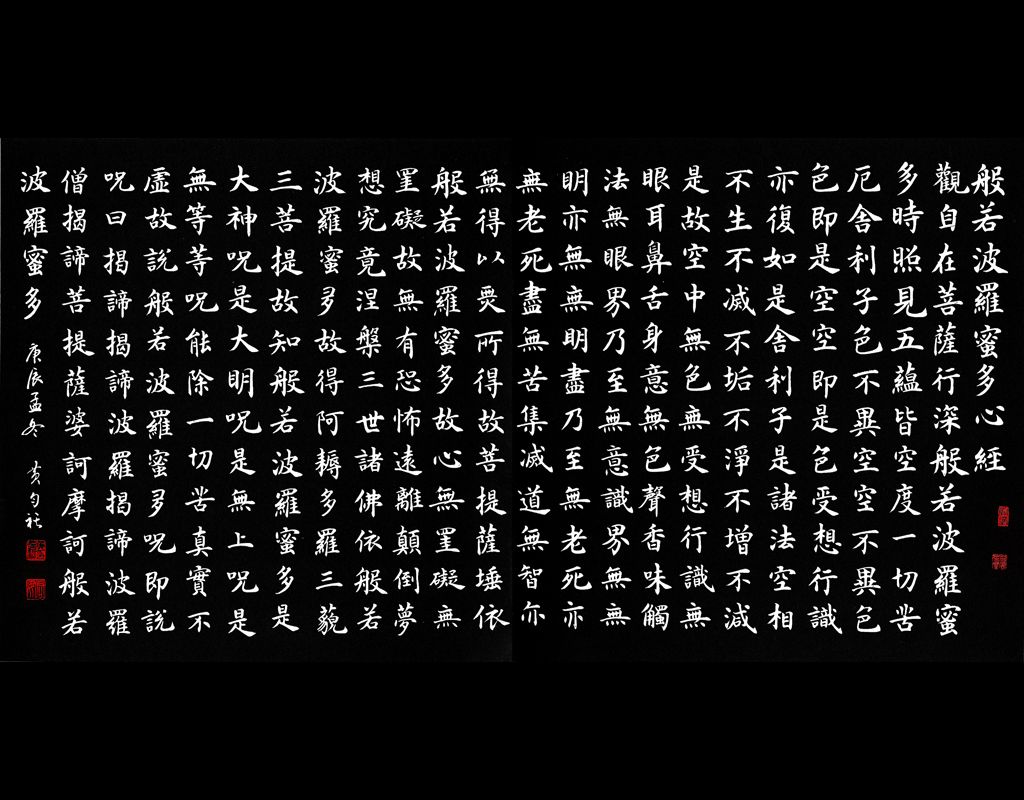 般若波羅蜜多心經
觀自在菩薩行深般若波羅蜜
多時照見五蘊皆空度一切苦
厄舍利子色不異空空不異色
色即是空空即是色受想行識
亦復如是舍利子是諸法空相
不生不滅不垢不淨不增不減
是故空中無色無受想行識無
眼耳鼻舌身意無色聲香味觸
法無眼界乃至無意識界無無
明亦無無明盡乃至無老死亦
無老死盡無苦集滅道無智亦
無得以無所得故菩提薩埵依
般若波羅蜜多故心無罣礙無
罣礙故無有恐怖遠離顛倒夢
想究竟涅槃三世諸佛依般若
波羅蜜多故得阿耨多羅三藐
三菩提故知般若波羅蜜多是
大神呪是大明呪是無上呪是
無等等呪能除一切苦真實不
虛故說般若波羅蜜多呪即說
呪曰揭諦揭諦波羅揭諦波羅
僧揭諦菩提薩婆訶摩訶般若
波羅蜜多 庚辰孟冬 黃勻